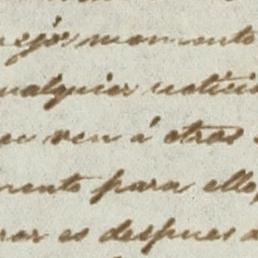 mejor momento
ualquier notici
en ven á otras
mento para ello,
rar es despues d